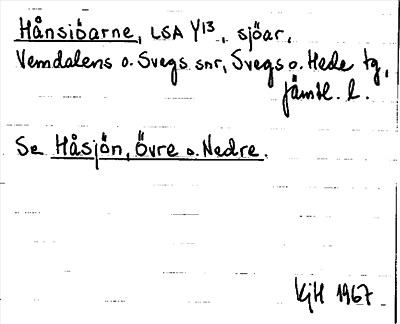 Hånsiöarne, LSA Y13, sjöar,
Vemdalens o. Svegs snr, Svegs o. Hede tg,
Jämtl. l.
Se Håsjön, Övre o. Nedre.
KjH 1967